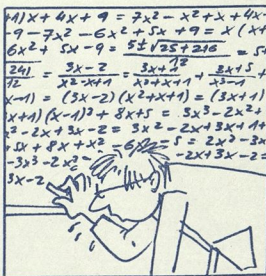 +1)x + 4x + 9 = 7x² - x² + x + 4x -
- 9 - 7x² - 6x² + 5x + 9 = x (x +
6x² + 5x - 9 = 5±√25+216 / 12 = 5±
241 / 12 = 3x-2 / x²-x+1 = 3x+1 / x²+x+1 + 8x+5 / x³-1
x-1) = (3x-2)(x²+x+1) = (3x+1)
x+1)(x-1)² + 8x+5 = 3x³-2x²+
²-2x+3x-2 = 3x²-2x+3x+1+
+5x + 8x + x² - 6 5 = 2x³-3x
-3x³-2x² -2x+3x-2=
3x-2